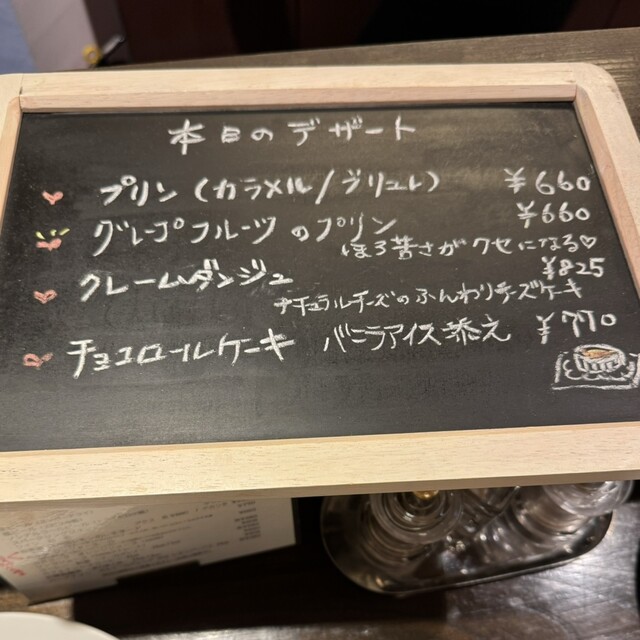 本日のデザート
プリン(カラメル/ブリュレ) ¥660
グレープフルーツのプリン ¥660
ほろ苦さがクセになる♡
クレームダンジュ ¥825
ナチュラルチーズのふんわりチーズケーキ
チョコロールケーキ バニラアイス添え ¥770